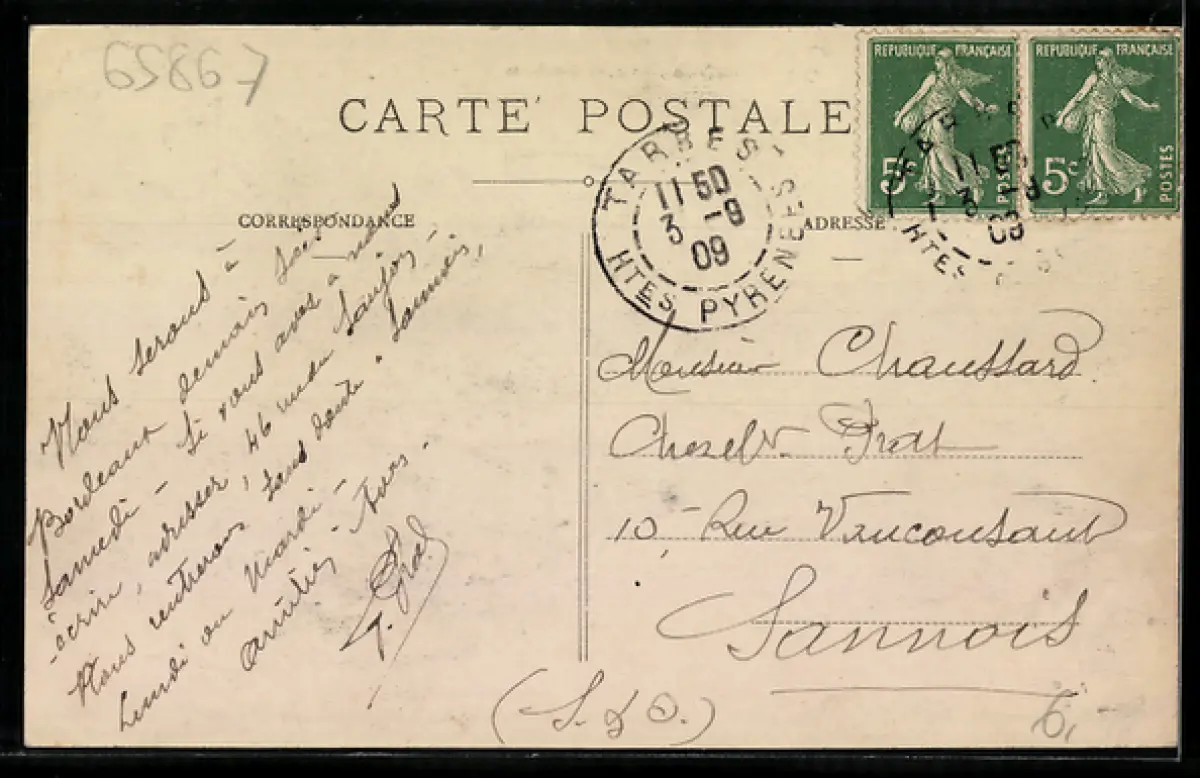 65867
CARTE POSTALE
REPUBLIQUE FRANÇAISE
5c
POSTES
REPUBLIQUE FRANÇAISE
5c
POSTES
TARBES
11 50
3 -9
09
HTES PYRENEES
11 50
3 -9
09
HTES
CORRESPONDANCE
ADRESSE
Nous serons à
Bordeaux demain soir
Samedi - Si vous avez à nous
écrire, adresser, 46 rue Saujon -
Nous rentrerons sans doute à Sannois,
Lundi ou Mardi -
Amitiés - tous -
G. Prat
Monsieur Chaussard
Chez Mr Prat
10, Rue Vauconsant
Sannois
(S. & O.)
6,-